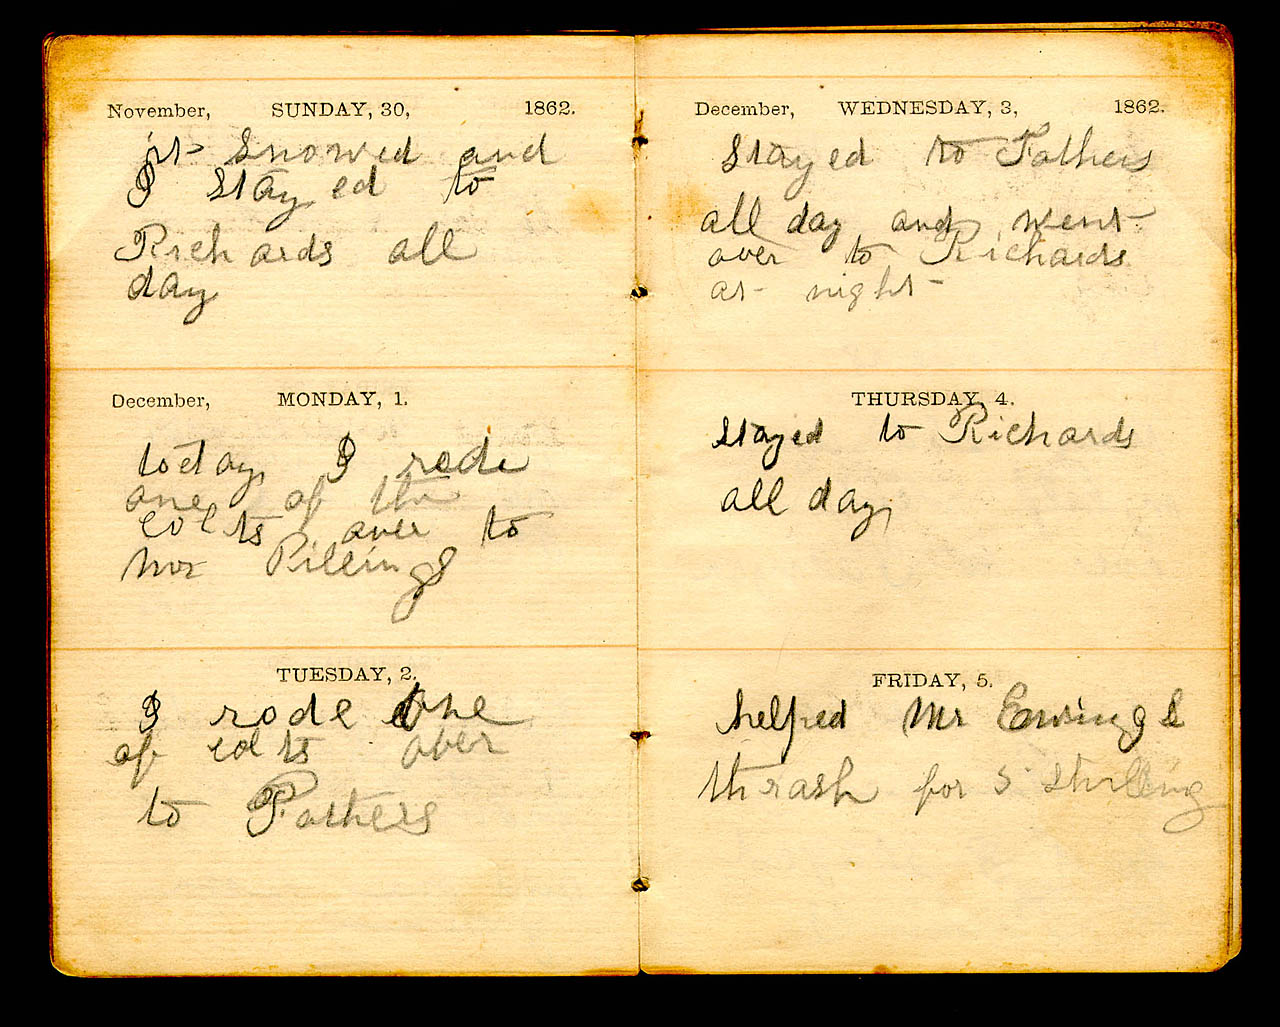 November, SUNDAY, 30, 1862.
it Snowed and
I stayed to
Richards all
day
December, MONDAY, 1.
today I rode
one of the
colts over to
mr Pillings
TUESDAY, 2.
I rode one
of colts over
to Fathers
December, WEDNESDAY, 3, 1862.
Stayed to Fathers
all day and went
over to Richards
at night
THURSDAY, 4.
stayed to Richards
all day
FRIDAY, 5.
helped Mr
thrash for 5 shilling